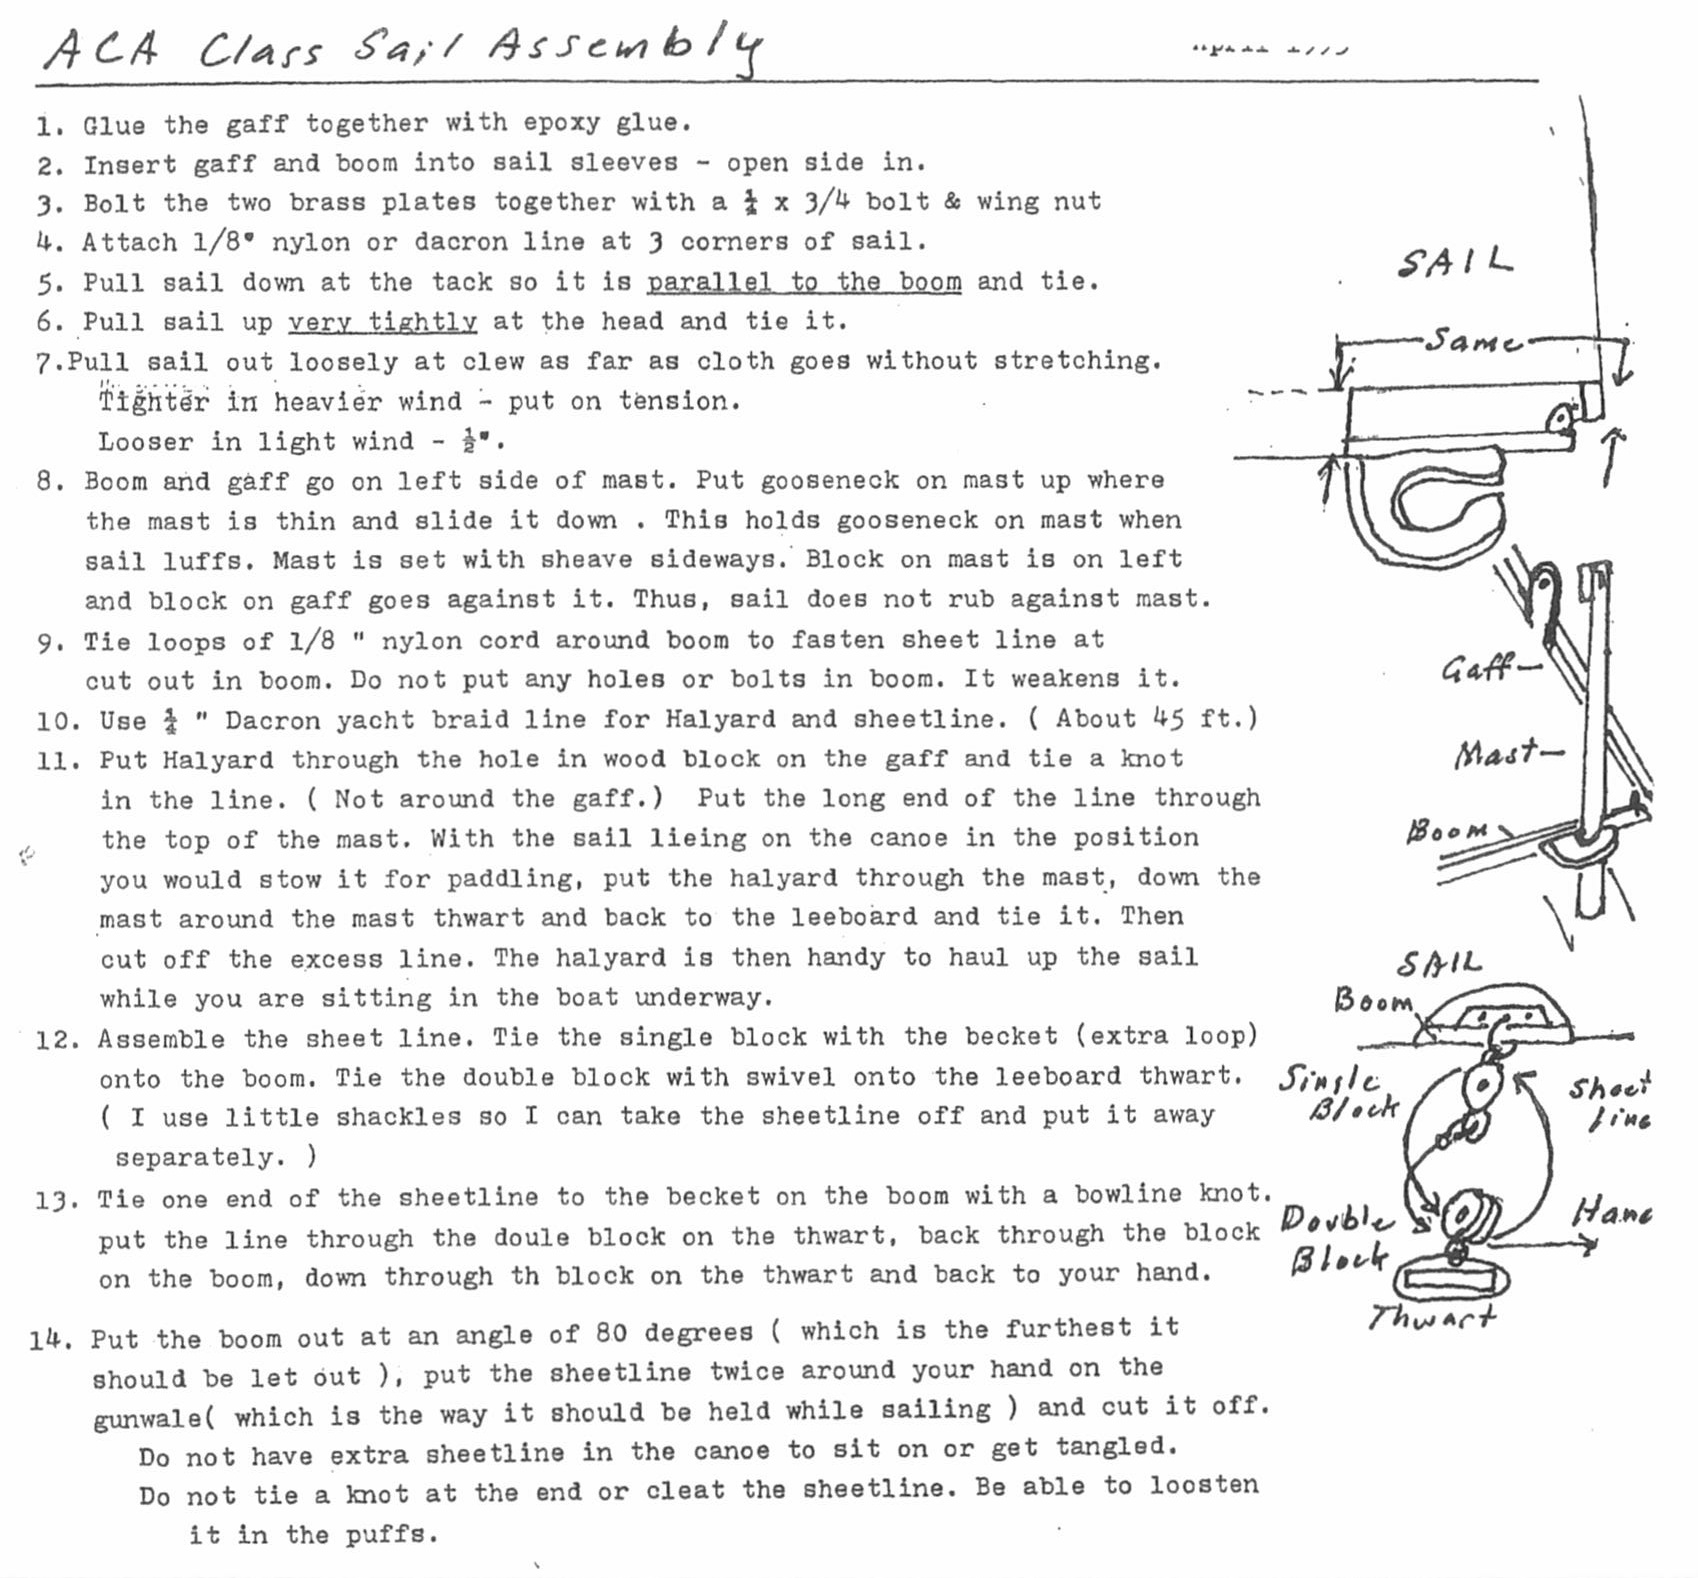 ACA Class Sail Assembly
1. Glue the gaff together with epoxy glue.
2. Insert gaff and boom into sail sleeves - open side in.
3. Bolt the two brass plates together with a ¼ x 3/4 bolt & wing nut
4. Attach 1/8" nylon or dacron line at 3 corners of sail.
5. Pull sail down at the tack so it is parallel to the boom and tie.
6. Pull sail up very tightly at the head and tie it.
7.Pull sail out loosely at clew as far as cloth goes without stretching.
Tighter in heavier wind - put on tension.
Looser in light wind - ½".
8. Boom and gaff go on left side of mast. Put gooseneck on mast up where
the mast is thin and slide it down . This holds gooseneck on mast when
sail luffs. Mast is set with sheave sideways. Block on mast is on left
and block on gaff goes against it. Thus, sail does not rub against mast.
9. Tie loops of 1/8 " nylon cord around boom to fasten sheet line at
cut out in boom. Do not put any holes or bolts in boom. It weakens it.
10. Use ¼ " Dacron yacht braid line for Halyard and sheetline. ( About 45 ft.)
11. Put Halyard through the hole in wood block on the gaff and tie a knot
in the line. ( Not around the gaff.) Put the long end of the line through
the top of the mast. With the sail lieing on the canoe in the position
you would stow it for paddling, put the halyard through the mast, down the
mast around the mast thwart and back to the leeboard and tie it. Then
cut off the excess line. The halyard is then handy to haul up the sail
while you are sitting in the boat underway.
12. Assemble the sheet line. Tie the single block with the becket (extra loop)
onto the boom. Tie the double block with swivel onto the leeboard thwart.
( I use little shackles so I can take the sheetline off and put it away
separately. )
13. Tie one end of the sheetline to the becket on the boom with a bowline knot.
put the line through the doule block on the thwart, back through the block
on the boom, down through th block on the thwart and back to your hand.
14. Put the boom out at an angle of 80 degrees ( which is the furthest it
should be let out ), put the sheetline twice around your hand on the
gunwale( which is the way it should be held while sailing ) and cut it off.
Do not have extra sheetline in the canoe to sit on or get tangled.
Do not tie a knot at the end or cleat the sheetline. Be able to loosten
it in the puffs.
SAIL
Same
Gaff
Mast
Boom
SAIL
Boom
Single
Block
Sheet
line
Double
Block
Hand
Thwart